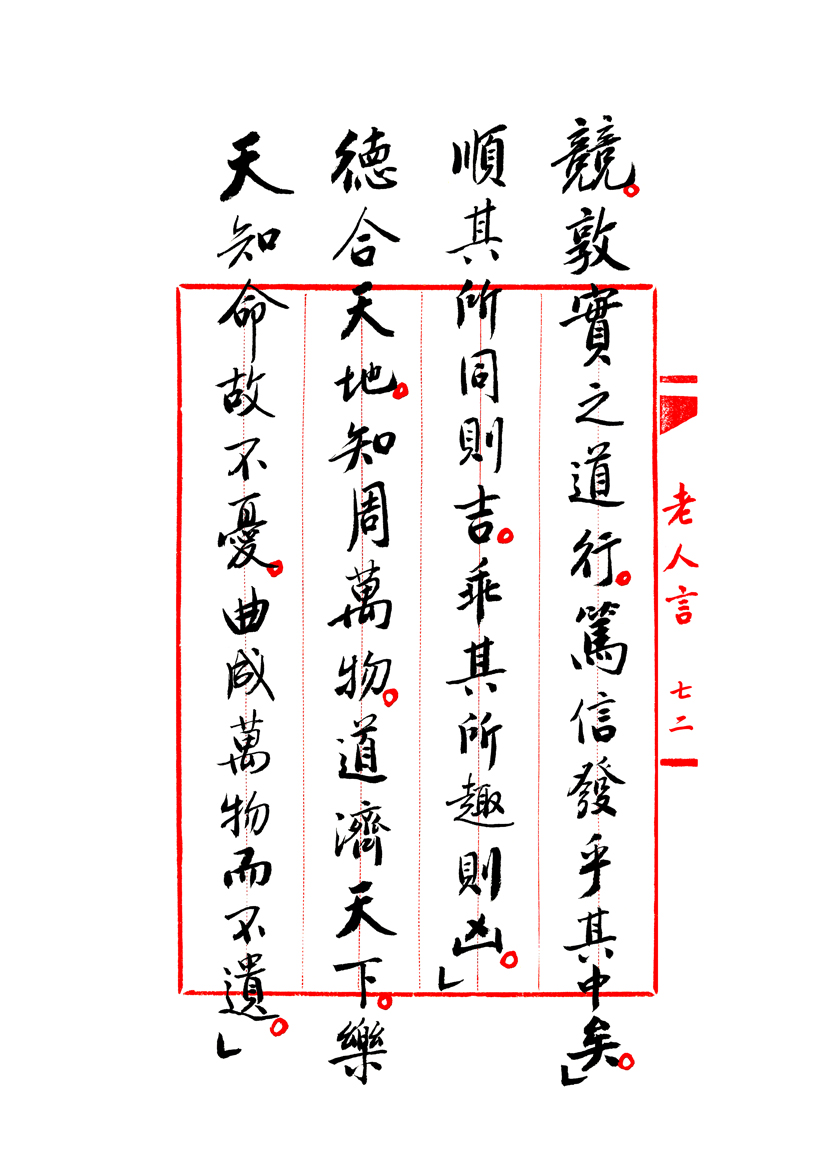 老人言 七二
競。敦實之道行。篤信發乎其中矣。」
順其所同則吉。乖其所趣則凶。」
德合天地。知周萬物。道濟天下。樂
天知命故不憂。曲成萬物而不遺。」